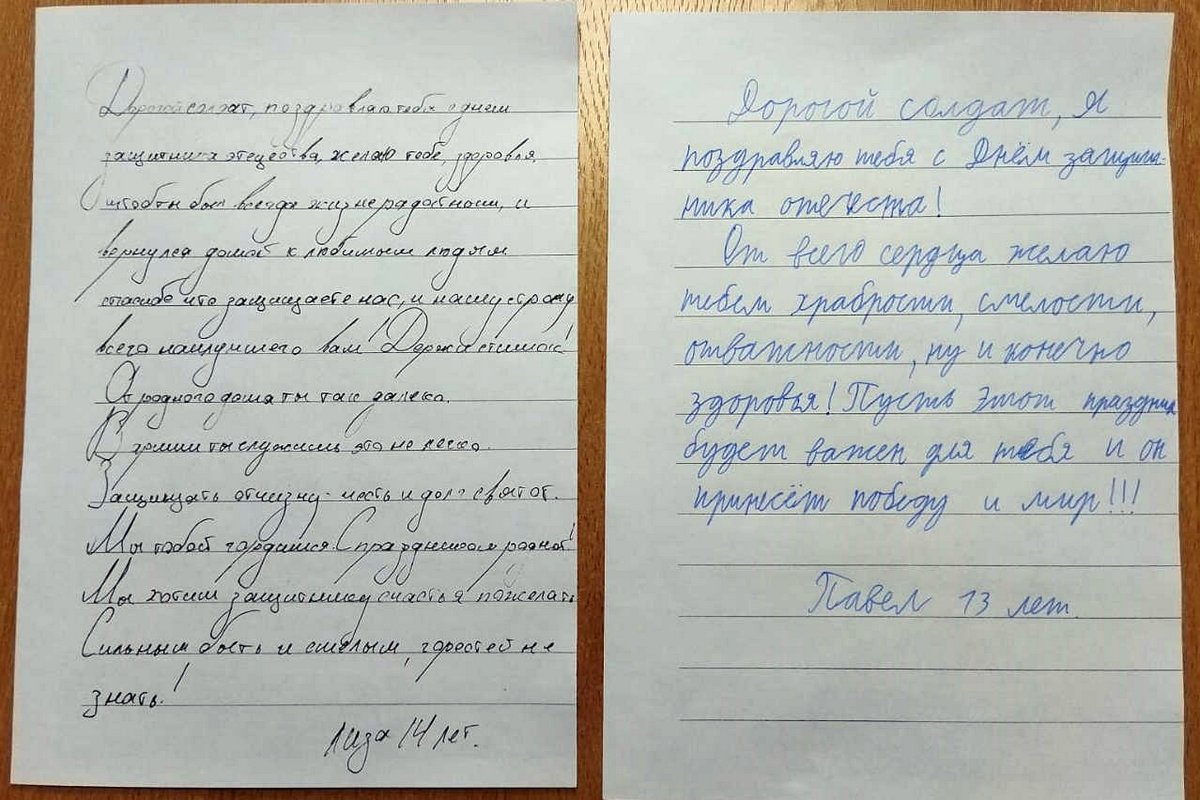 Дорогой солдат, поздравляю тебя с днем
защитника отечества, желаю тебе, здоровья,
чтоб ты был всегда жизнерадостным, и
вернулся домой к любимым людям
спасибо что защищаете нас, и нашу страну
всего наилучшего вам! Держастишок!
От родного дома ты так далеко.
В армии ты служишь это не легко.
Защищать отчизну - честь и долг святой.
Мы тобой гордимся. С праздником родной!
Мы хотим защитнику счастья пожелать
Сильным быть и смелым, горестей не
знать!
Лиза 14 лет.
Дорогой солдат, я
поздравляю тебя с Днём защит-
ника отечеста!
От всего сердца желаю
тебем храбрости, смелости,
отважности, ну и конечно
здоровья! Пусть этот праздник
будет важен для тебя и он
принесёт победу и мир!!!
Павел 13 лет.